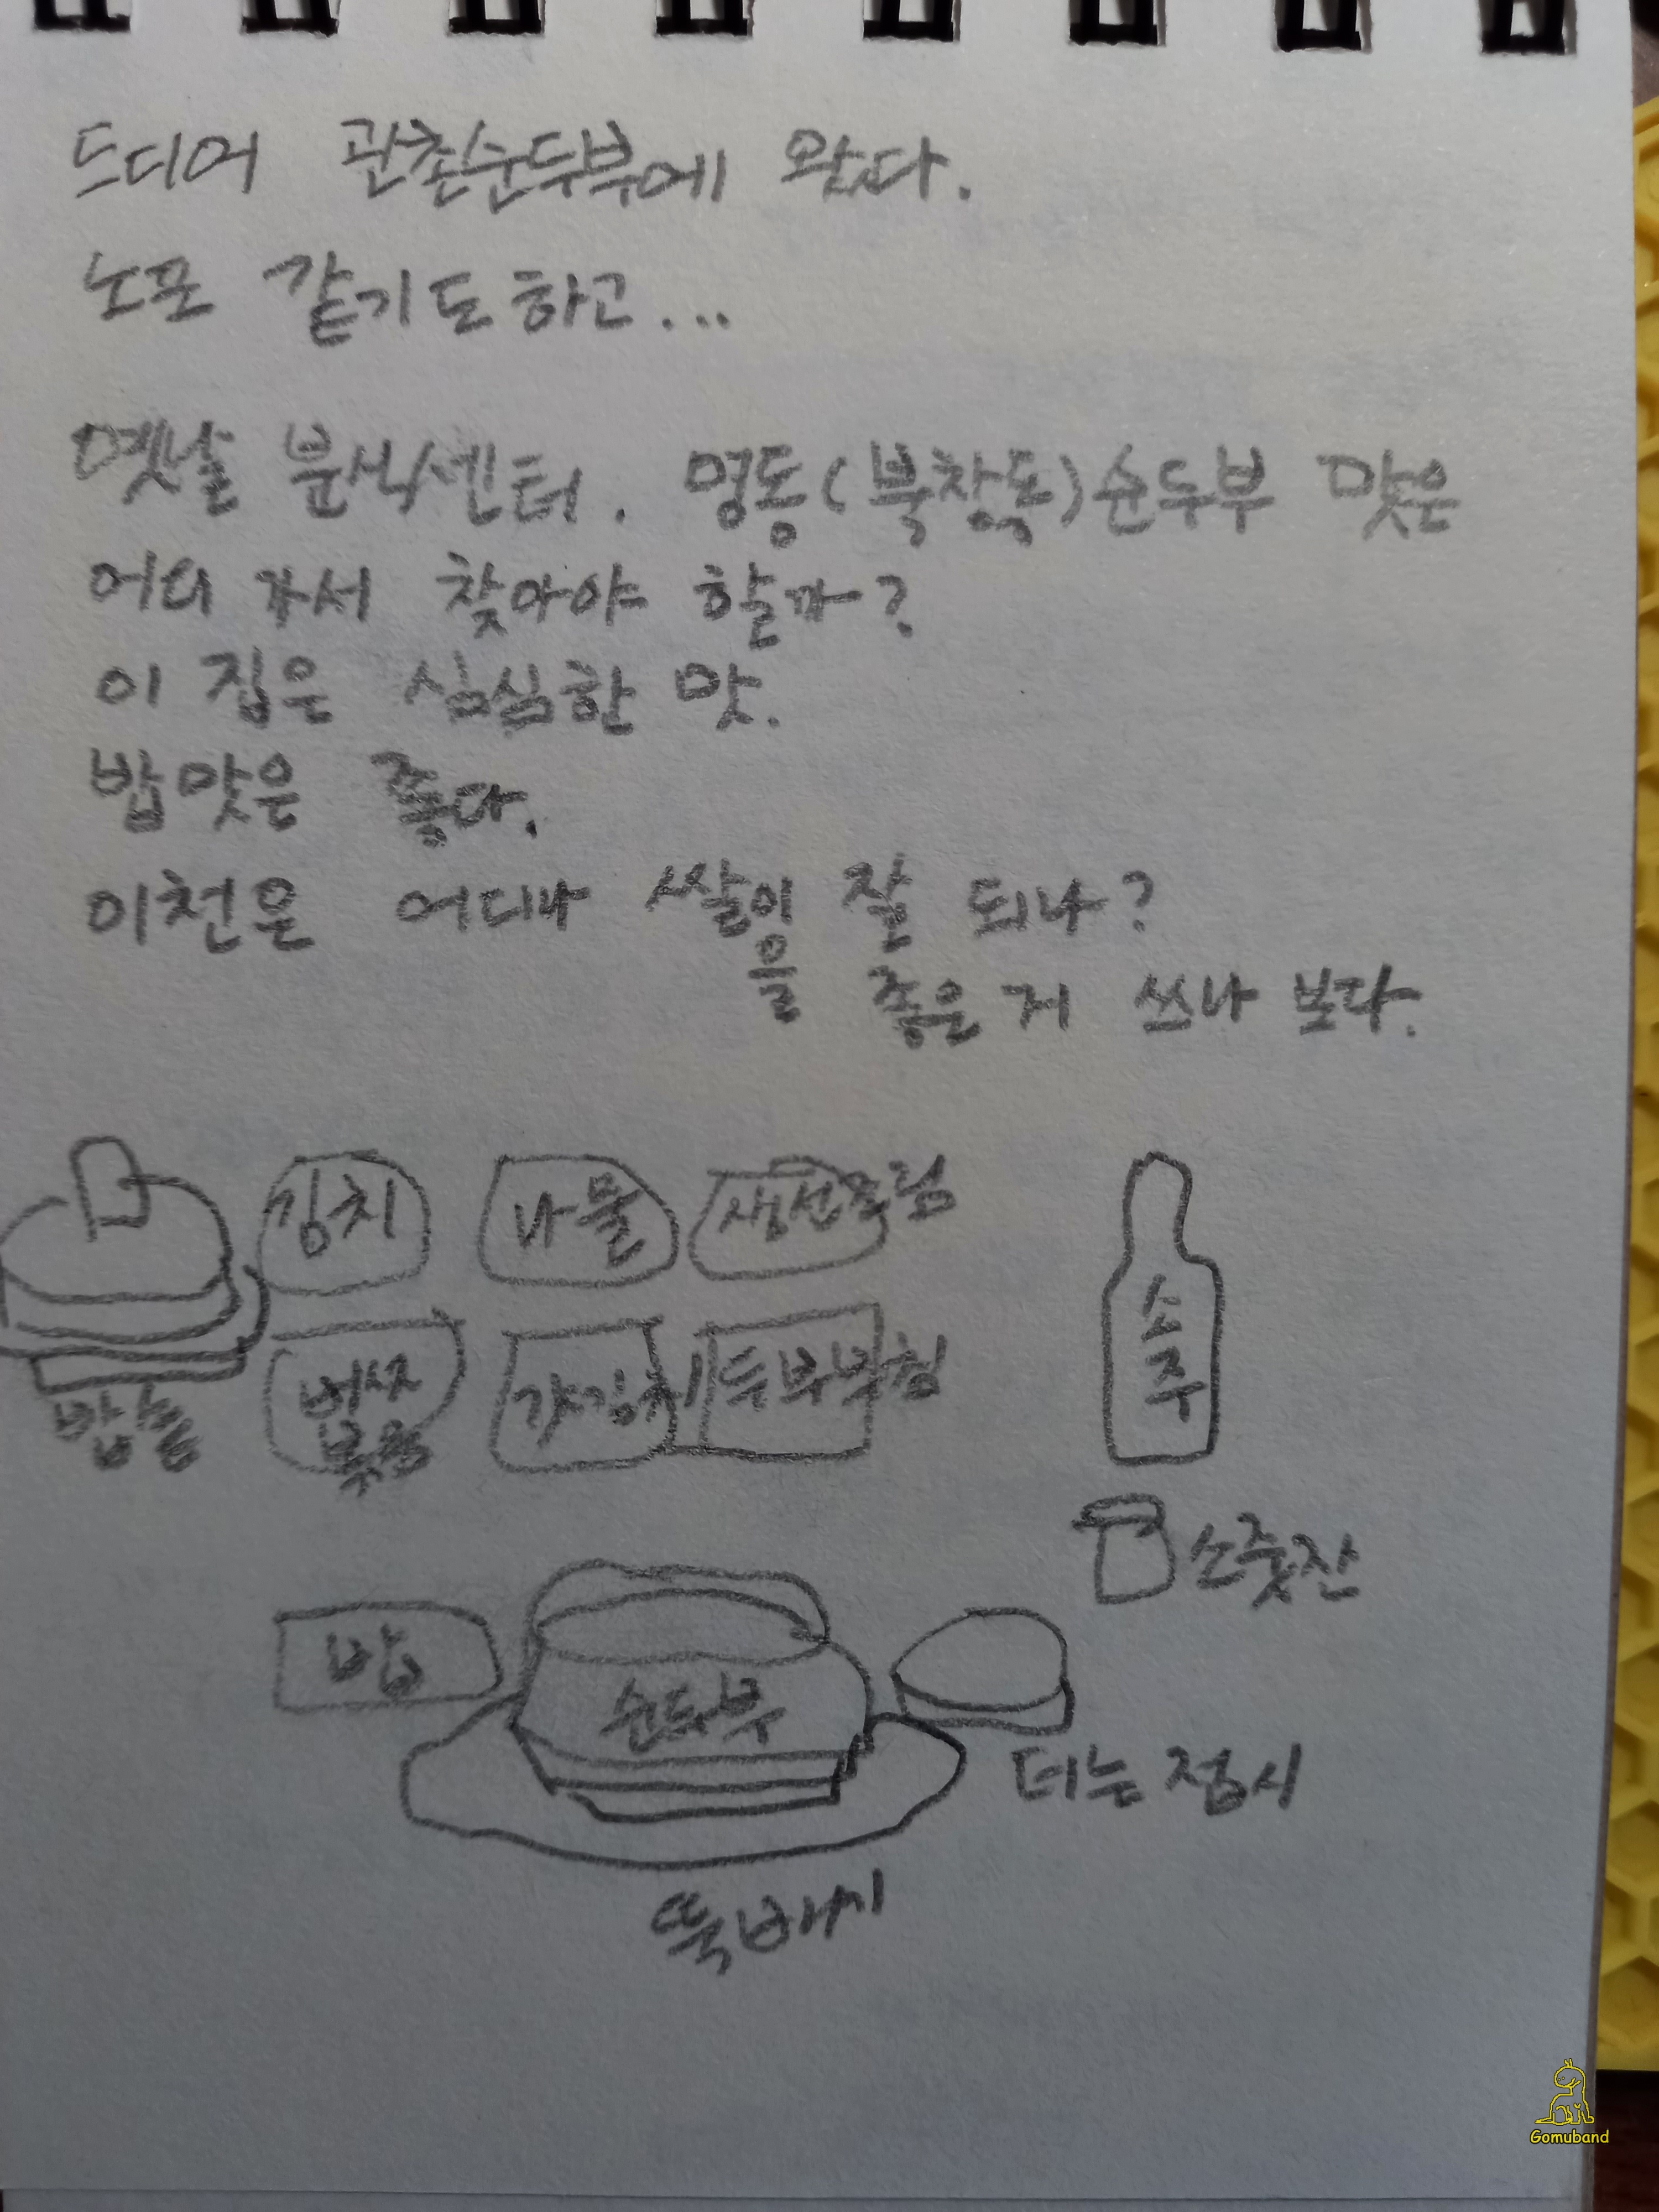 드디어 관촌순두부에 왔다.
노포 같기도 하고...
옛날 분식센터. 명동(북창동)순두부 맛은
어디 가서 찾아야 할까?
이 집은 심심한 맛.
밥맛은 좋다.
이천은 어디나 쌀이 잘 되나?
을 좋은 거 쓰나 보다.
김치 나물 생선조림
소주
밥솥
버섯
볶음
갓김치
두부부침
소줏잔
밥
순두부
더는 접시
뚝배기
Gomuband